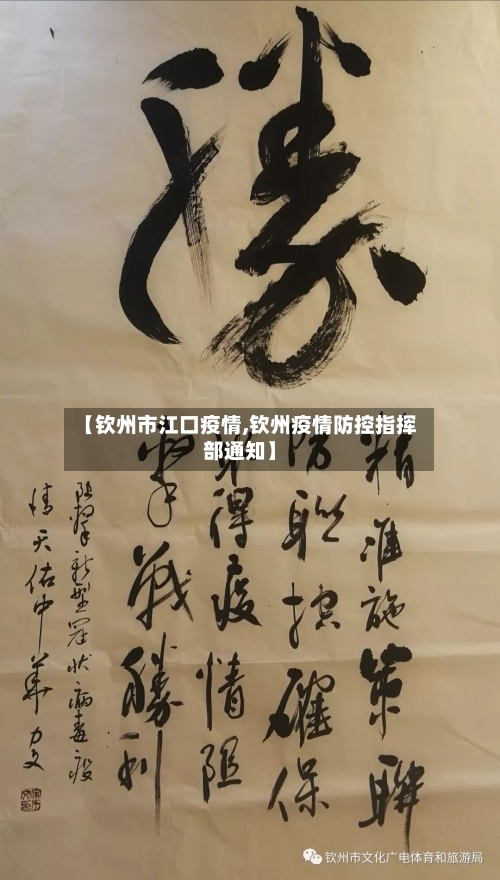 勝
【钦州市江口疫情,钦州疫情防控指挥
部通知】
精准施策聯
防联控確保
得疫情阻
擊戰勝利
阻擊新型冠状病毒疫
情天佑中華力文
钦州市文化广电体育和旅游局